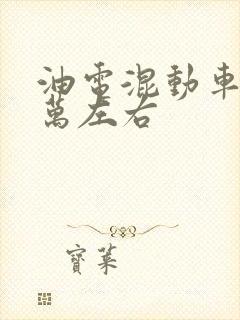 油電混動車
萬左右
寶萊